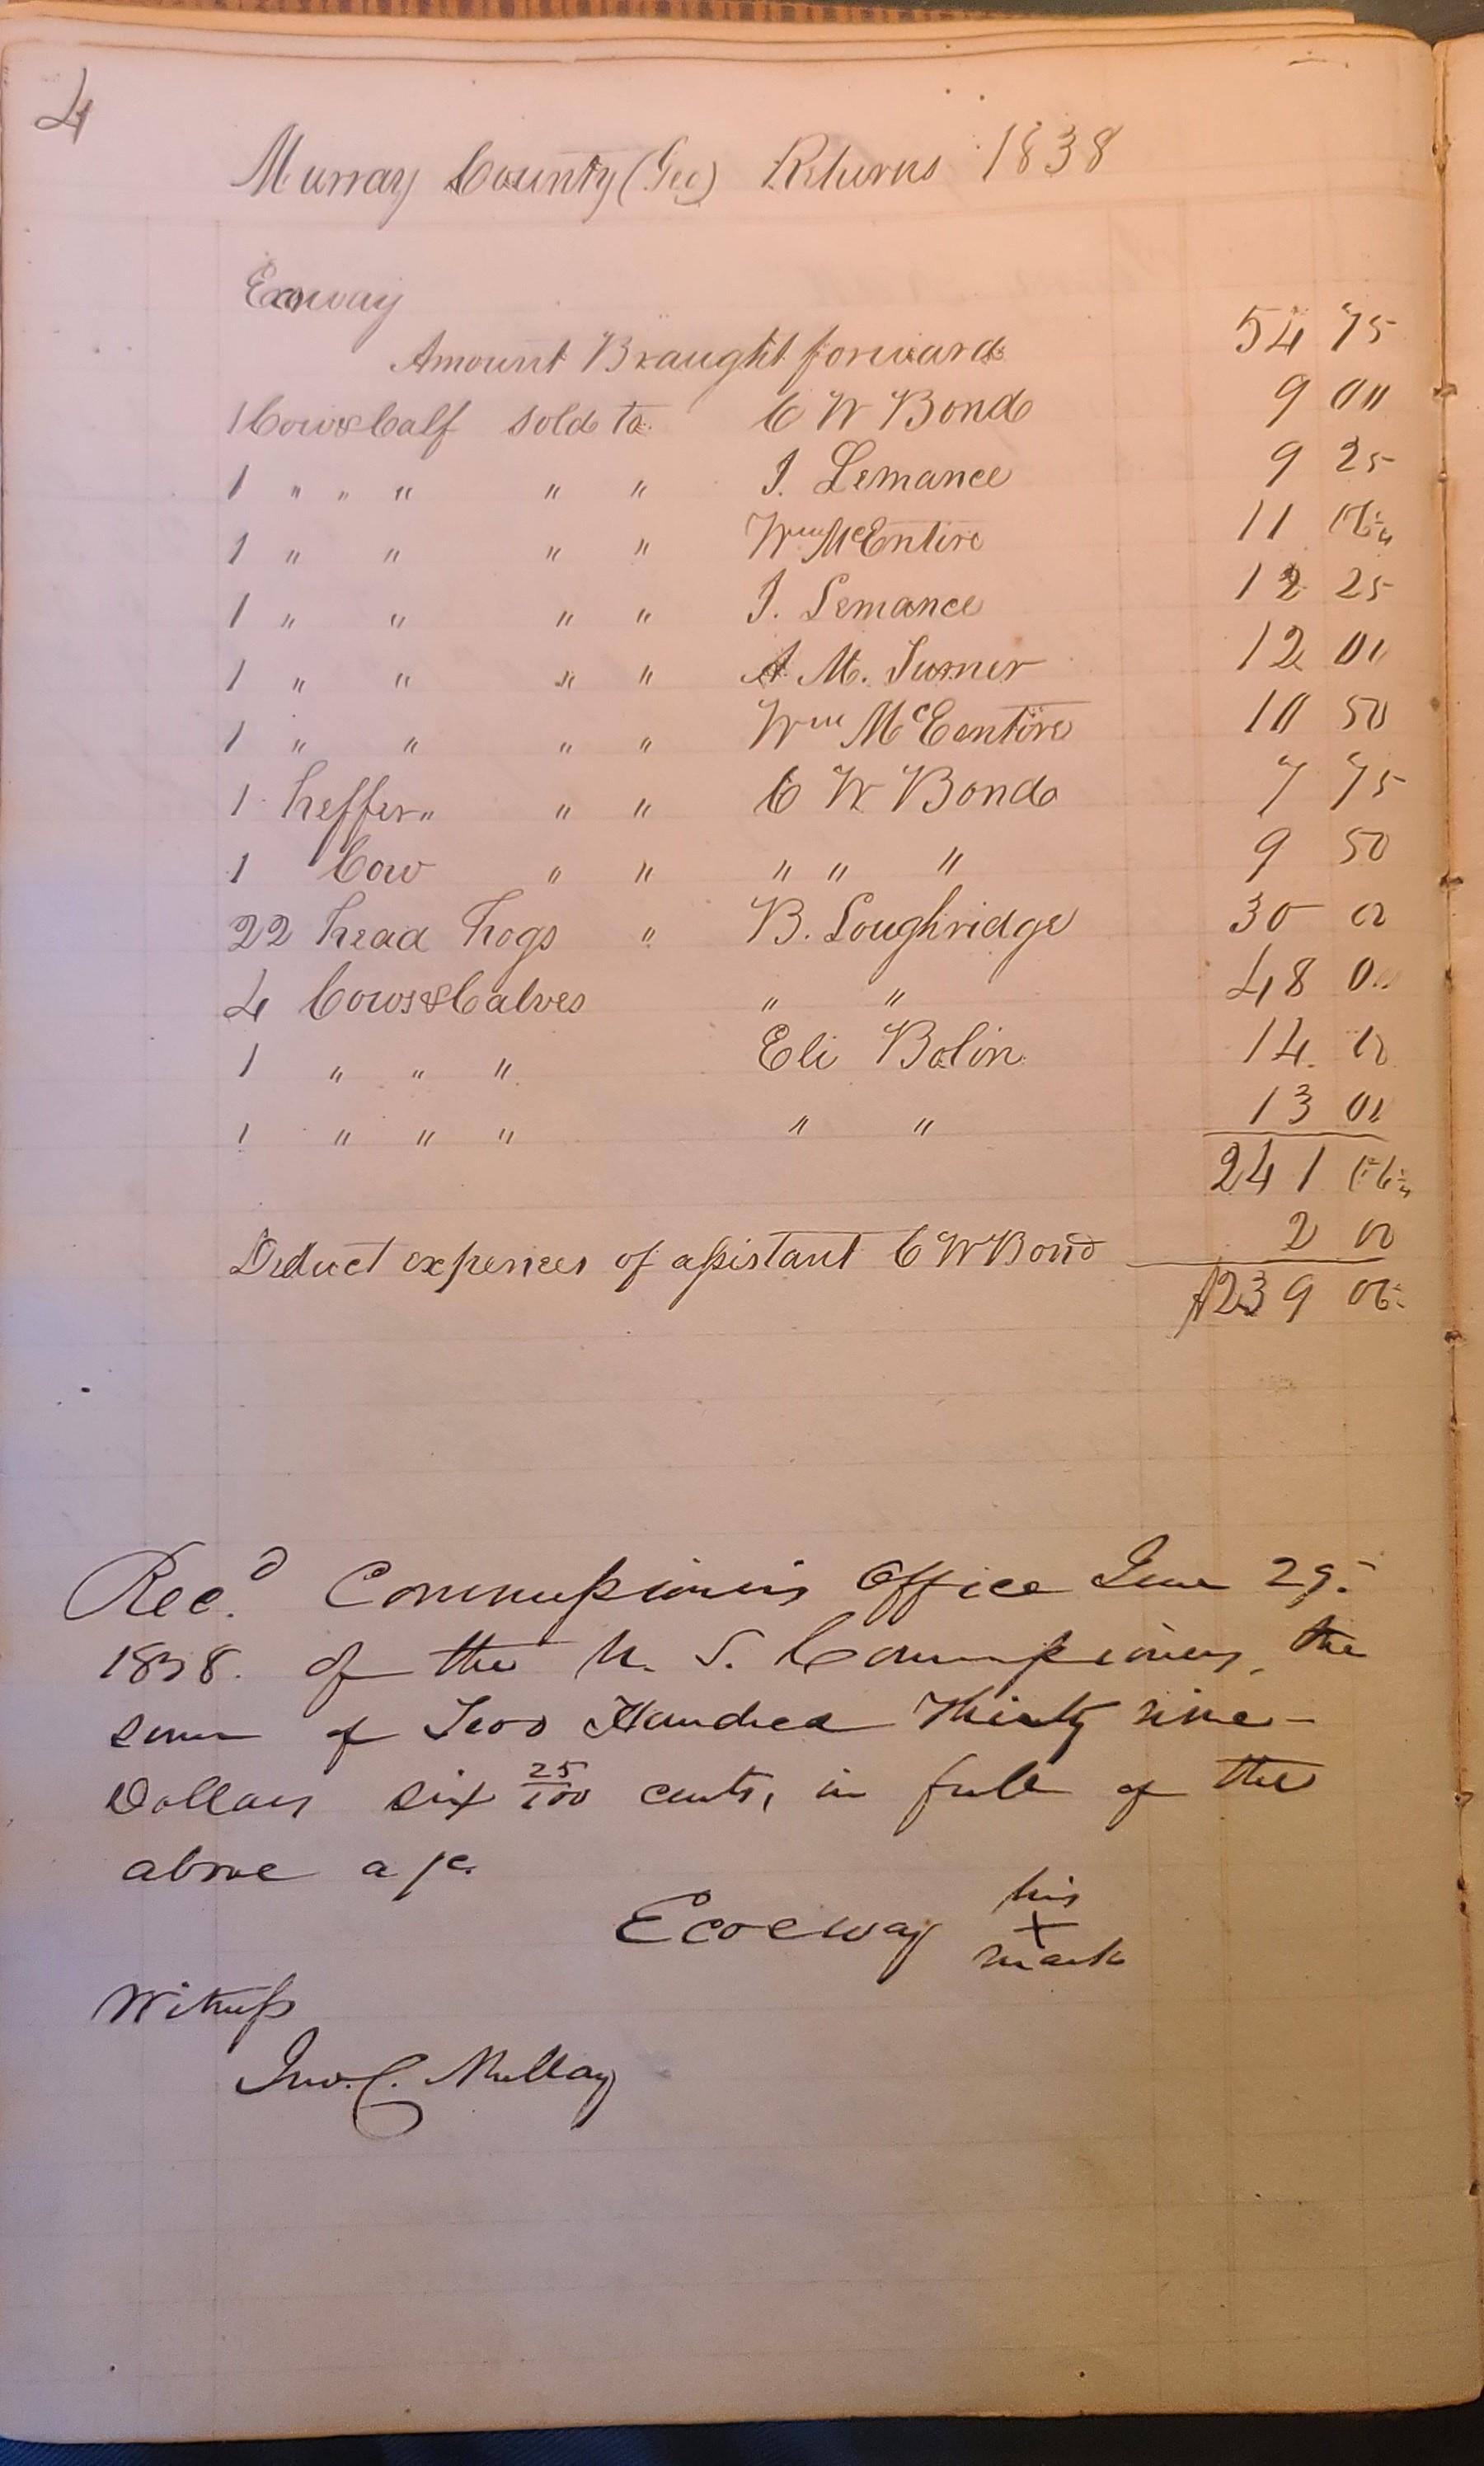 4
Murray County (Geo) Returns 1838
Exoway
Amount Braught forward 54 75
1 Cow & Calf sold to C W Bond 9 00
1 " " " " " J. Lemance 9 25
1 " " " " Wm McEntire 11 06¼
1 " " " " J. Lemance 12 25
1 " " " " A. M. Turner 12 00
1 " " " " Wm McEentire 10 50
1 heffer " " " C W Bond 7 75
1 Cow " " " " " 9 50
22 head hogs " B. Loughridge 30 00
4 Cows & Calves " " 48 00
1 " " " Eli Bolin 14. 00
1 " " " " " 13 00
241 06¼
Deduct expences of assistant C W Bond 2 00
$239 06¼
Recd. Commissioners Office June 29.
1838. of the U. S. Commissioners, the
sum of Two Hundred Thirty nine
Dollars six 25/100 cents, in full of the
above a/c.
Ecoeway his
X
mark
Witness
Jno. C. Mullay